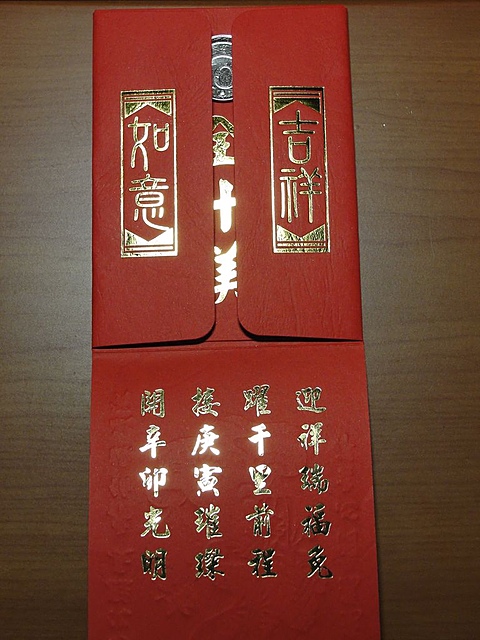 吉祥
全十美
如意
迎祥瑞福兔
躍千里前程
接庚寅璀璨
開辛卯光明